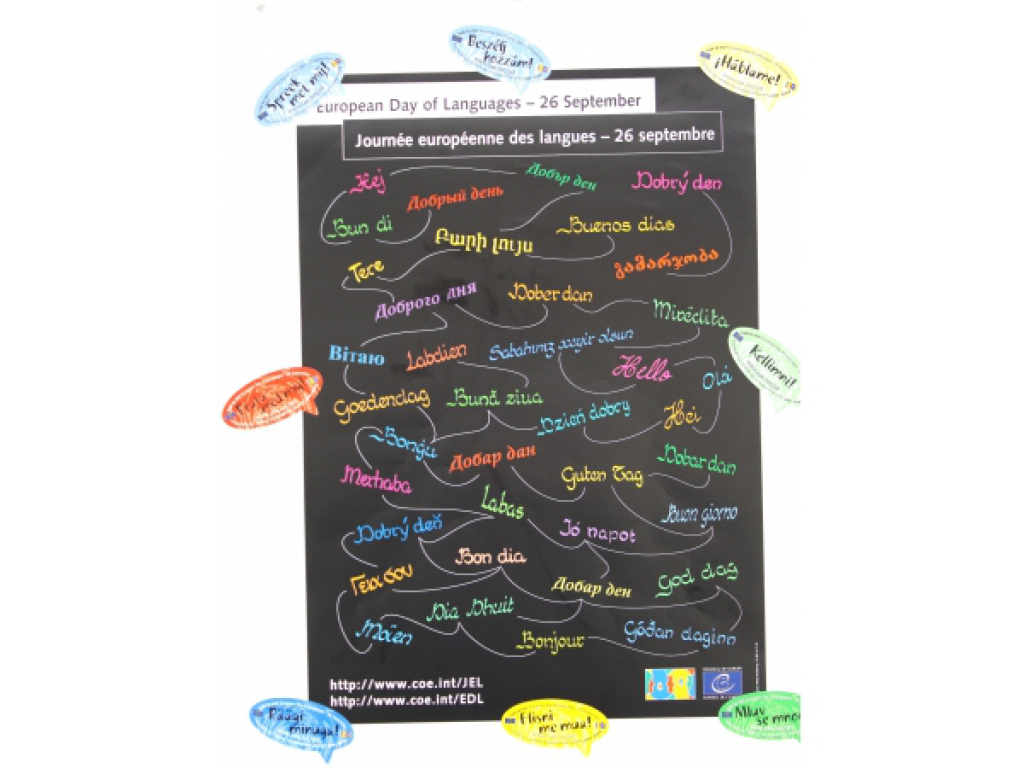 Beszélj
hozzám!
Spreek
met mij!
¡Háblame!
European Day of Languages – 26 September
Journée européenne des langues – 26 septembre
Hej
Добър ден
Dobrý den
Добрый день
Bun di
Buenos dias
Բարի լույս
Tere
გამარჯობა
Доброго дня
Dober dan
Mirëdita
Вітаю
Labdien
Sabahınız xeyir olsun
Hello
Olá
Kellimni!
Goedendag
Bună ziua
Dzień dobry
Hei
Bonġu
Добар дан
Dobar dan
Merhaba
Guten Tag
Labas
Buon giorno
Dobrý deň
Jó napot
Bon dia
Γεια σου
Добар ден
God dag
Dia Dhuit
Moïen
Bonjour
Góðan daginn
http://www.coe.int/JEL
http://www.coe.int/EDL
Räägi
minuga!
Flisni
me mua!
Mluv
se mnou